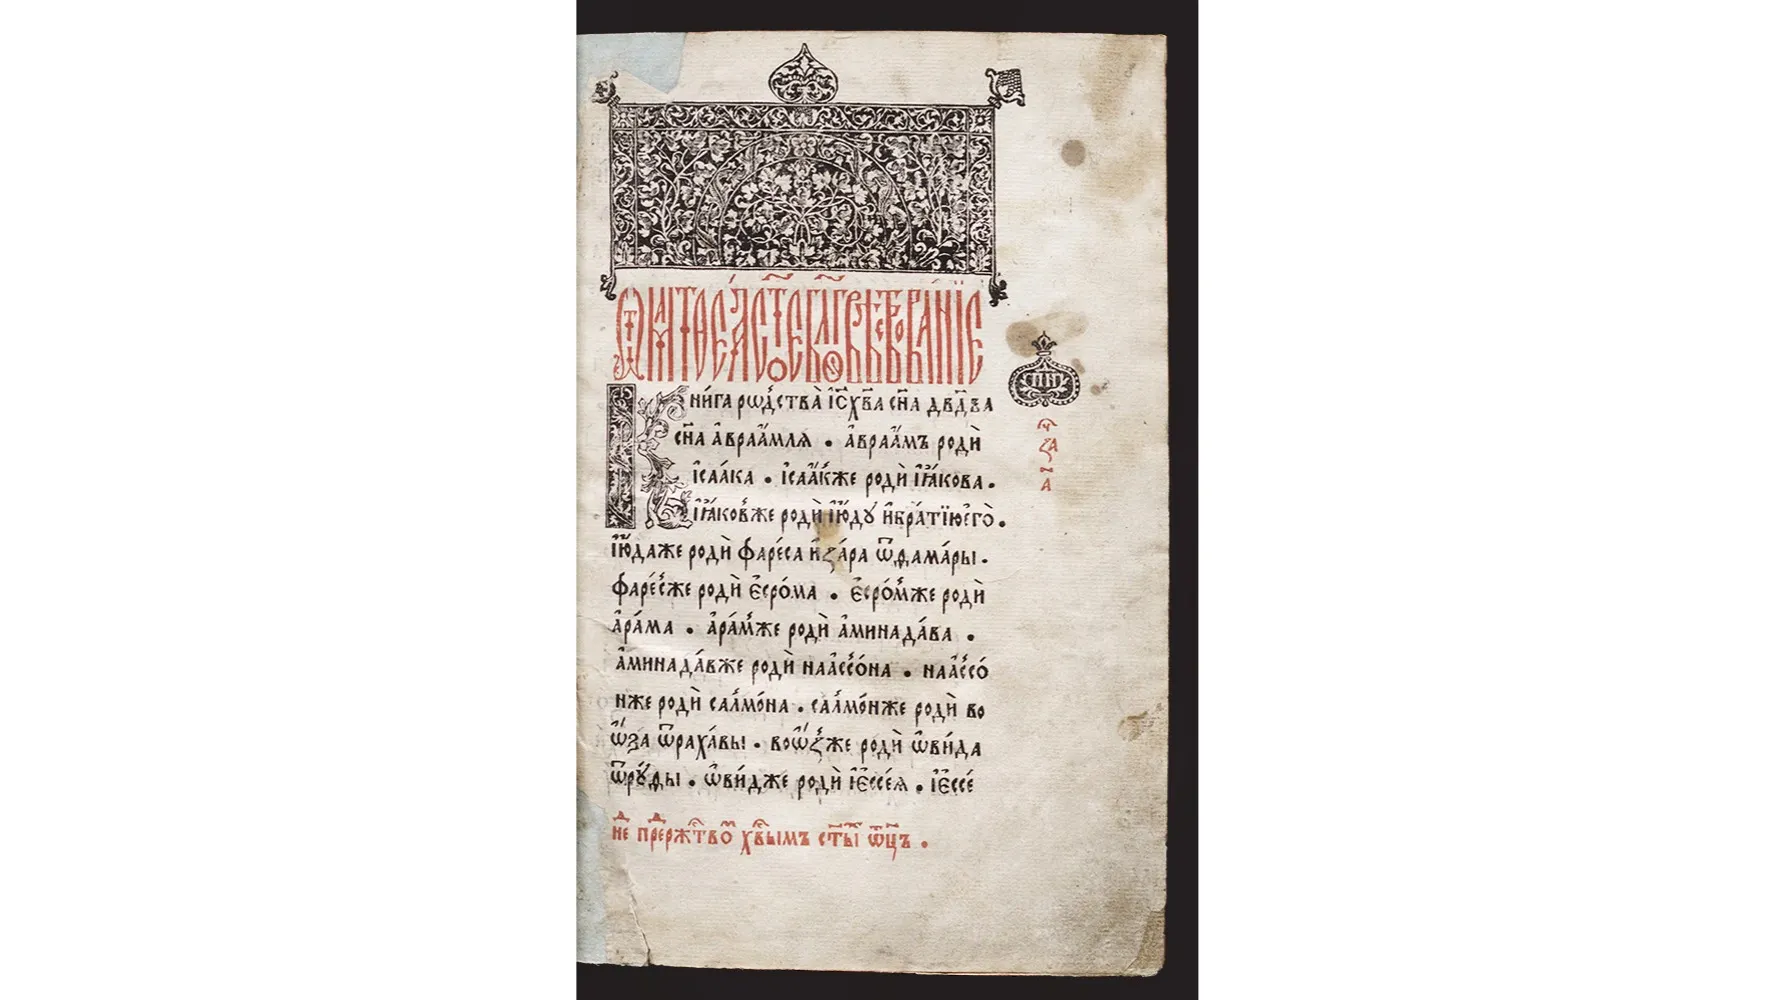 Ѿ маѳеѧ ст҃ое бл҃говѣствова́нїе
Кни́га рѡдⷭ҇ства̀ і҆с҃ хв҃а сн҃а дв҃дѣа
сн҃а а҆враа́мля • а҆враа́мъ родѝ
і҆саа́ка • і҆саа́кже родѝ і҆а҆́кова •
і҆а҆́ковже родѝ і҆ю́ду и҆бра́тїюе҆го̀ •
і҆ю́даже родѝ фаре́са и҆ꙁа́ра ѿѳама́ры •
фаре́сже родѝ є҆сро́ма • є҆сро́мже родѝ
а҆ра́ма • а҆ра́мже родѝ а҆минада́ва •
а҆минада́вже родѝ наассо́на • наассо́
нже родѝ салмо́на • салмо́нже родѝ во
ѡ́за ѿраха́вы • воѡ́ꙁже родѝ ѡ҆ви́да
ѿрꙋ́ѳы • ѡ҆ви́дже родѝ і҆єссе́я • і҆єссе́
не преⷣ ржⷭ҇твоⷨ хв҃ымъ ст҃ыⷯ ѿц҃ъ •
пн҃
ꙁа҃
а҃